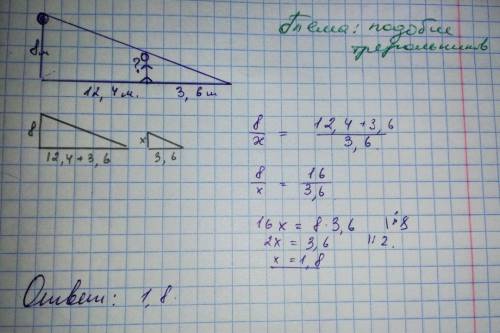 Тема: подобие
треугольников
8м
?
12,4 м. 3,6 м
8
12,4+3,6
x
3,6
8/x = 12,4+3,6/3,6
8/x = 16/3,6
16x = 8·3,6 |:8
2x = 3,6 |:2.
x = 1,8
Ответ: 1,8.